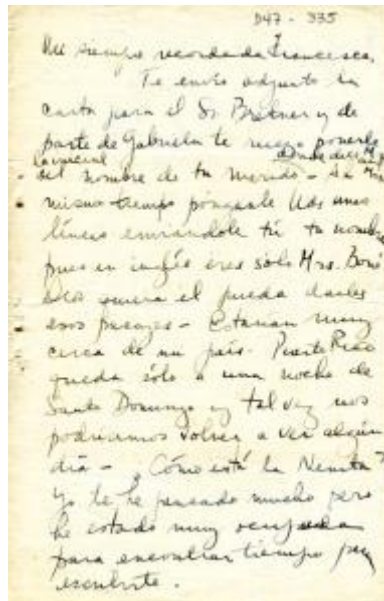 D47 - 335
Mi siempre recordada Francesca,
Te envío adjunto la
carta para el Sr Bretner y de
parte de Gabriela te ruego ponerle
la inicial donde dice M
del nombre de tu marido - Al
mismo tiempo pónganle Uds unas
líneas enviándole tú tu nombre
pues en inglés eres solo Mrs. Boni
quiera el pueda darles
esos pasajes - Estarían muy
cerca de mi país. Puerto Rico
queda sólo a una noche de
Santo Domingo y tal vez nos
podríamos volver a ver algún
día - ¿Cómo está la Nenita?
Yo te he pensado mucho pero
he estado muy ocupada
para encontrar tiempo para
escribirte.